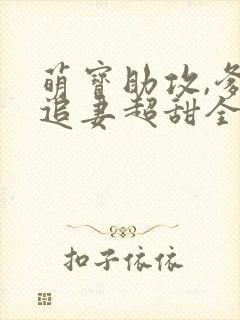 萌寶助攻,爹
追妻超甜全
扣子依依